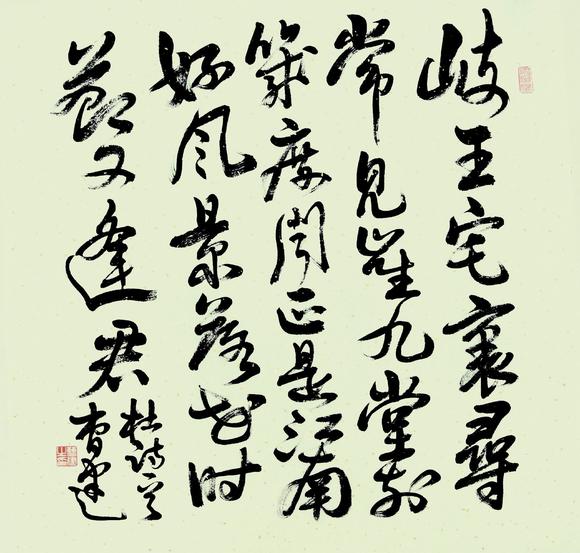 岐王宅裏尋
常見崔九堂前
幾度聞正是江南
好風景落花时
節又逢君
杜诗